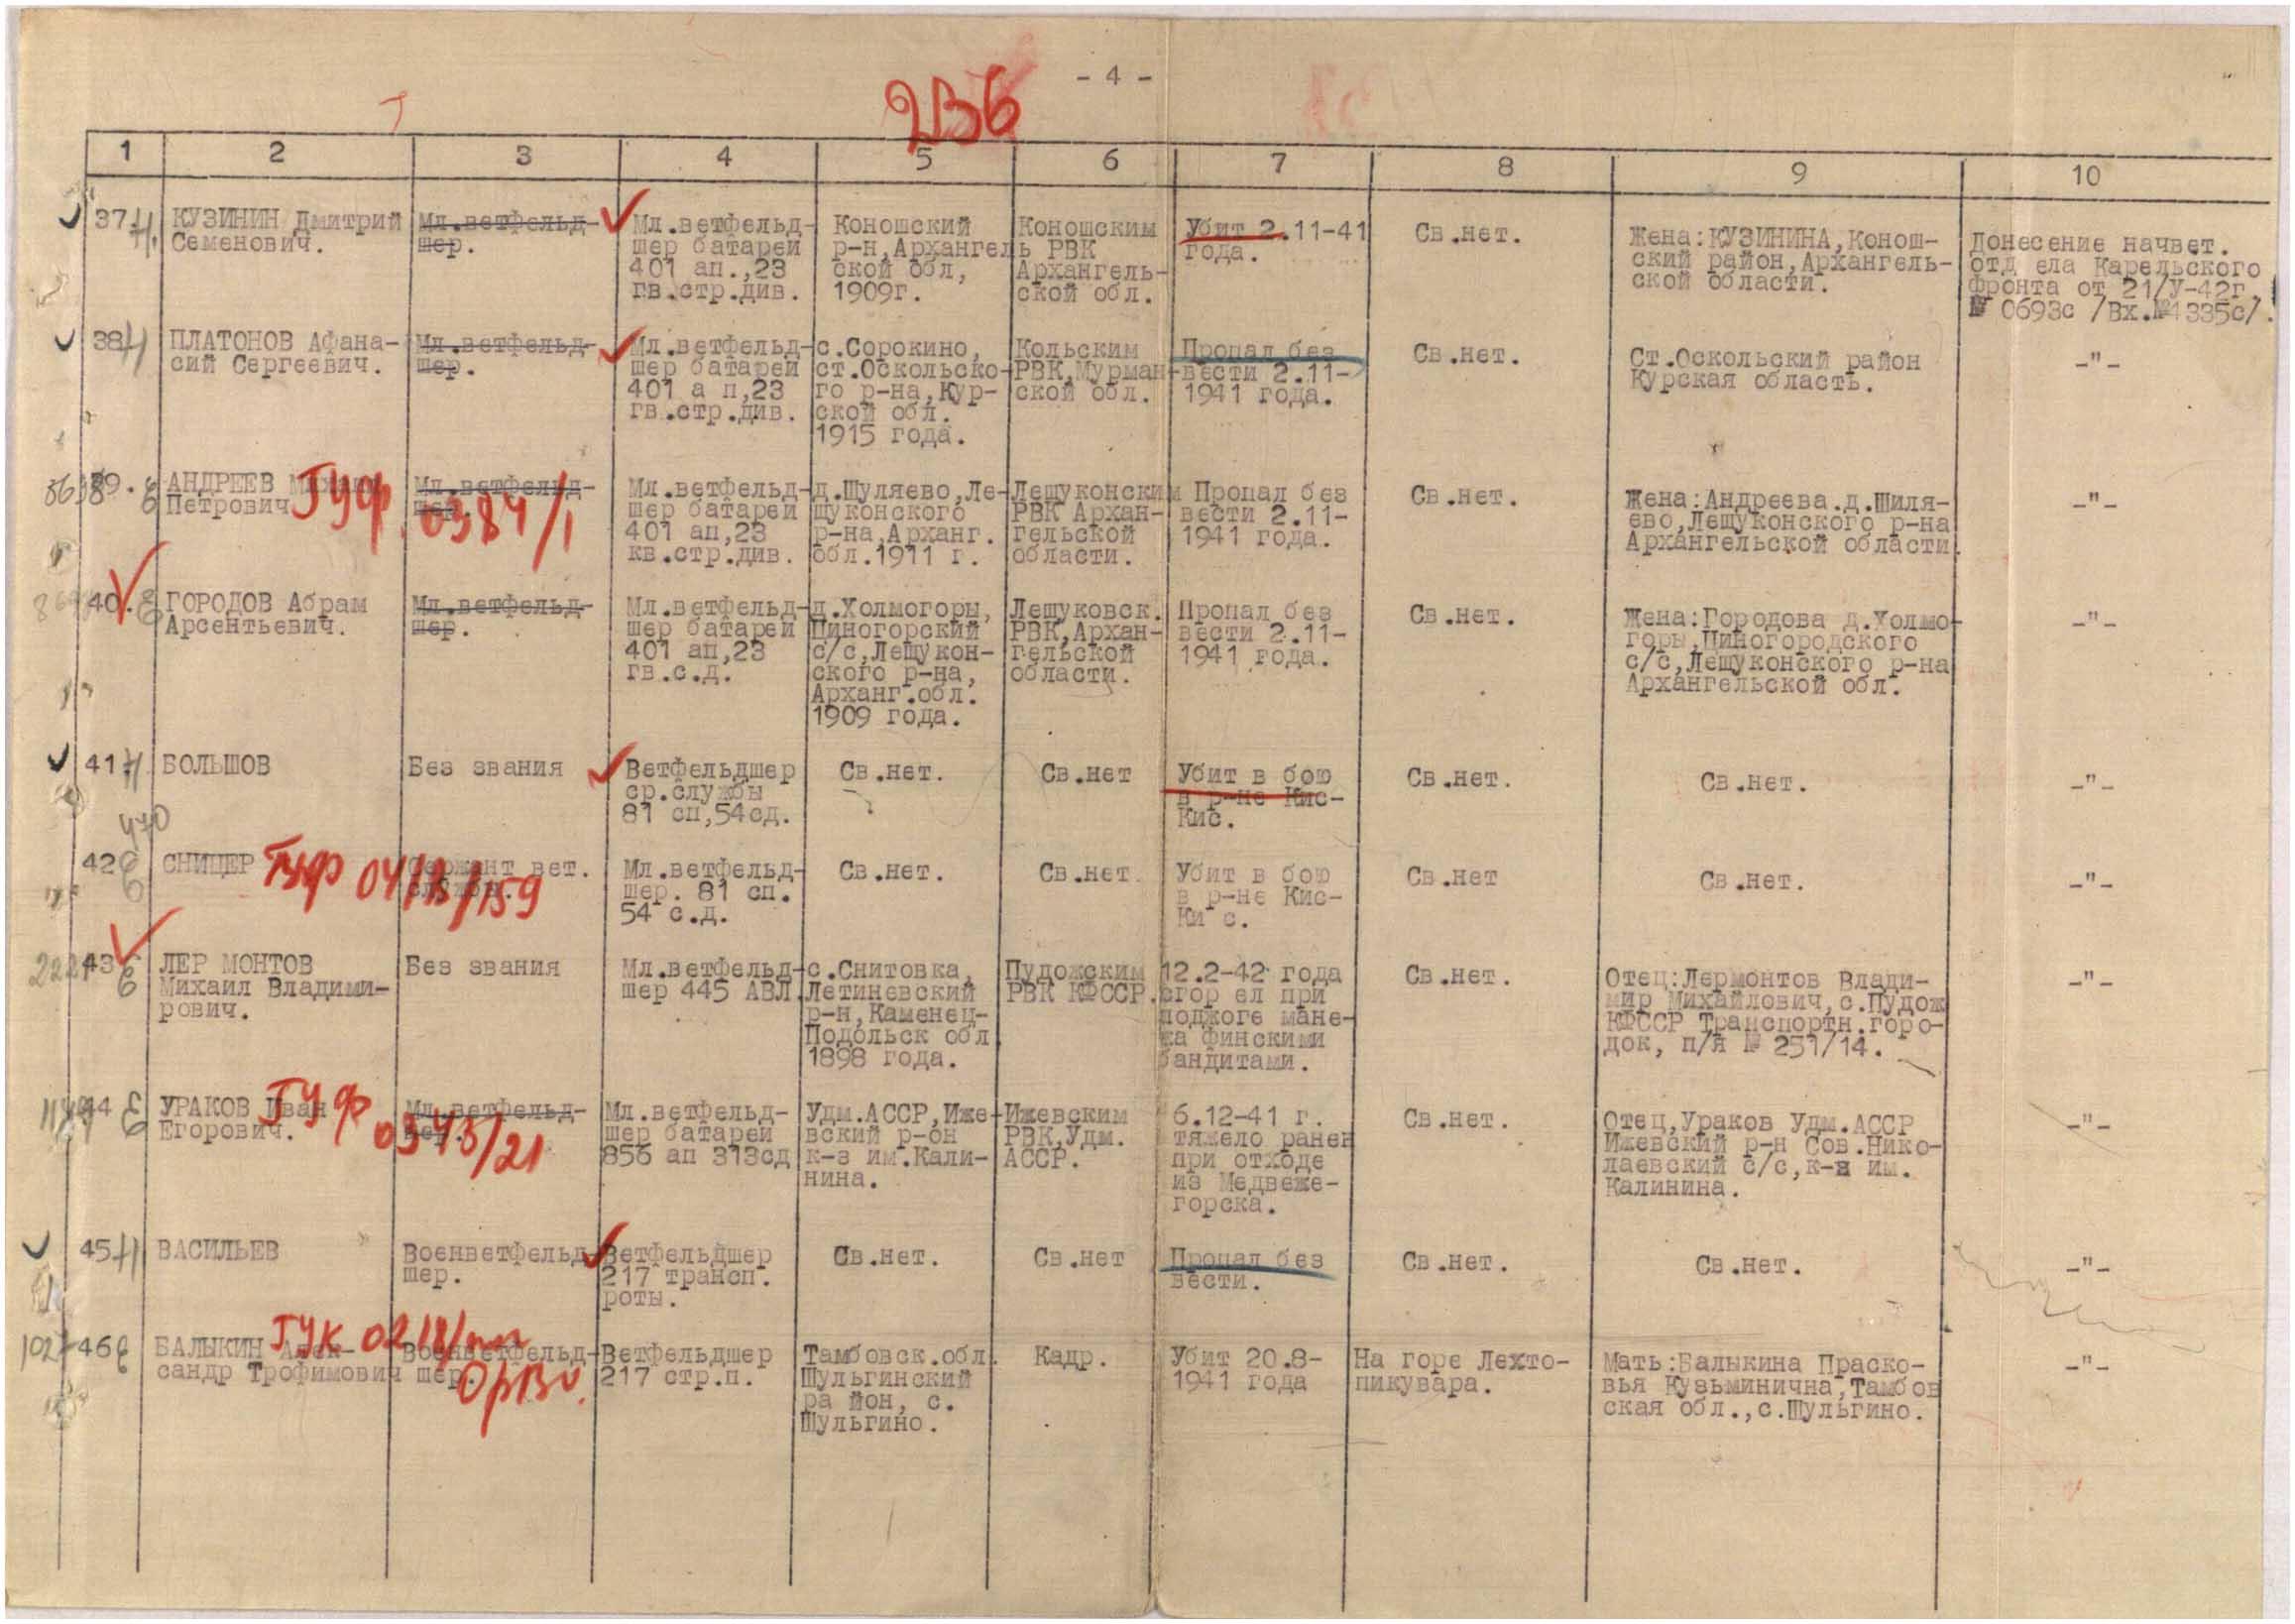 - 4 -
236
1 2 3 4 5 6 7 8 9 10
37 КУЗИНИН Дмитрий
Семенович.
Мл.ветфельд-
шер.
Мл.ветфельд-
шер батареи
401 ап.,23
гв.стр.див.
Коношский
р-н,Архангель
ской обл,
1909г.
Коношским
РВК
Архангель-
ской обл.
Убит 2.11-41
года.
Св.нет.
Жена:КУЗИНИНА,Конош-
ский район,Архангель-
ской области.
Донесение начвет.
отд ела Карельского
фронта от 21/У-42г.
№ 0693с /Вх.№1335с/.
38 ПЛАТОНОВ Афана-
сий Сергеевич.
Мл.ветфельд-
шер.
Мл.ветфельд-
шер батареи
401 а п,23
гв.стр.див.
с.Сорокино,
ст.Оскольско-
го р-на,Кур-
ской обл.
1915 года.
Кольским
РВК,Мурман-
ской обл.
Пропал без
вести 2.11-
1941 года.
Св.нет.
Ст.Оскольский район
Курская область.
-"-
39. АНДРЕЕВ
Петрович
ГУФ
0384/1
Мл.ветфельд-
шер.
Мл.ветфельд-
шер батареи
401 ап,23
кв.стр.див.
д.Шуляево,Ле-
шуконского
р-на,Арханг.
обл.1911 г.
Лешуконским
РВК Архан-
гельской
области.
Пропал без
вести 2.11-
1941 года.
Св.нет.
Жена:Андреева.д.Шиля-
ево,Лешуконского р-на
Архангельской области.
-"-
40. ГОРОДОВ Абрам
Арсентьевич.
Мл.ветфельд-
шер.
Мл.ветфельд-
шер батареи
401 ап,23
гв.с.д.
д.Холмогоры,
Циногорский
с/с,Лешукон-
ского р-на,
Арханг.обл.
1909 года.
Лешуковск.
РВК,Архан-
гельской
области.
Пропал без
вести 2.11-
1941 года.
Св.нет.
Жена:Городова д.Холмо-
горы,Циногородского
с/с,Лешуконского р-на
Архангельской обл.
-"-
41 БОЛЬШОВ
Без звания
Ветфельдшер
ср.службы
81 сп,54сд.
Св.нет.
Св.нет
Убит в бою
в р-не Кис-
Кис.
Св.нет.
Св.нет.
-"-
470
42 СНИЦЕР
ГУФ
Сержант вет.
Мл.ветфельд-
шер. 81 сп.
54 с.д.
Св.нет.
Св.нет.
Убит в бою
в р-не Кис-
Ки с.
Св.нет
Св.нет.
-"-
43 ЛЕР МОНТОВ
Михаил Владими-
рович.
Без звания
Мл.ветфельд-
шер 445 АВЛ.
с.Снитовка,
Летиневский
р-н,Каменец-
Подольск обл
1898 года.
Пудожским
РВК КФССР.
12.2-42 года
сгор ел при
поджоге мане-
жа финскими
бандитами.
Св.нет.
Отец:Лермонтов Влади-
мир Михайлович,с.Пудож
КФССР Транспортн.горо-
док, п/я № 251/14.
-"-
44 УРАКОВ Иван
Егорович.
ГУФ
0343/21
Мл.ветфельд-
шер.
Мл.ветфельд-
шер батареи
856 ап 313сд
Удм.АССР,Иже-
вский р-он
к-з им.Кали-
нина.
Ижевским
РВК,Удм.
АССР.
6.12-41 г.
тяжело ранен
при отходе
из Медвеже-
горска.
Св.нет.
Отец,Ураков Удм.АССР
Ижевский р-н Сов.Нико-
лаевский с/с,к-з им.
Калинина.
-"-
45 ВАСИЛЬЕВ
Военветфельд-
шер.
Ветфельдшер
217 трансп.
роты.
Св.нет.
Св.нет
Пропал без
вести.
Св.нет.
Св.нет.
-"-
46 БАЛЫКИН Алек-
сандр Трофимович
ГУК
Военветфельд-
шер.
Ветфельдшер
217 стр.п.
Тамбовск.обл.
Шульгинский
ра йон, с.
Шульгино.
Кадр.
Убит 20.8-
1941 года
На горе Лехто-
пикувара.
Мать:Балыкина Праско-
вья Кузьминична,Тамбов
ская обл.,с.Шульгино.
-"-